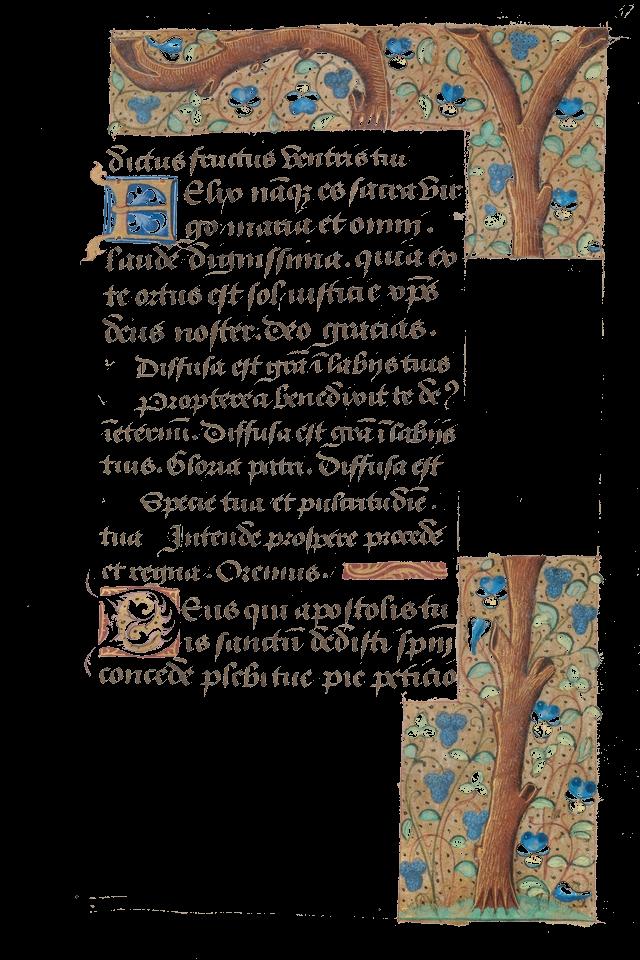 dictus fructus ventris tui
Felix nāq; es sacra vir
go maria et omni .
laude dignissima. quia ex
te ortus est sol iusticie xp̄s
deus noster. Deo gracias.
Diffusa est gr̄a ī labijs tuis
Propterea benedixit te de?
ī eternū. Diffusa est gr̄a ī labijs
tuis. Gloria patri. Diffusa est
Specie tua et pulcritudīe .
tua Intende prospere procede
et regna. Oremus.
Deus qui apostolis tu
is sanctū dedisti spm̄
concede plebi tue pie peticio